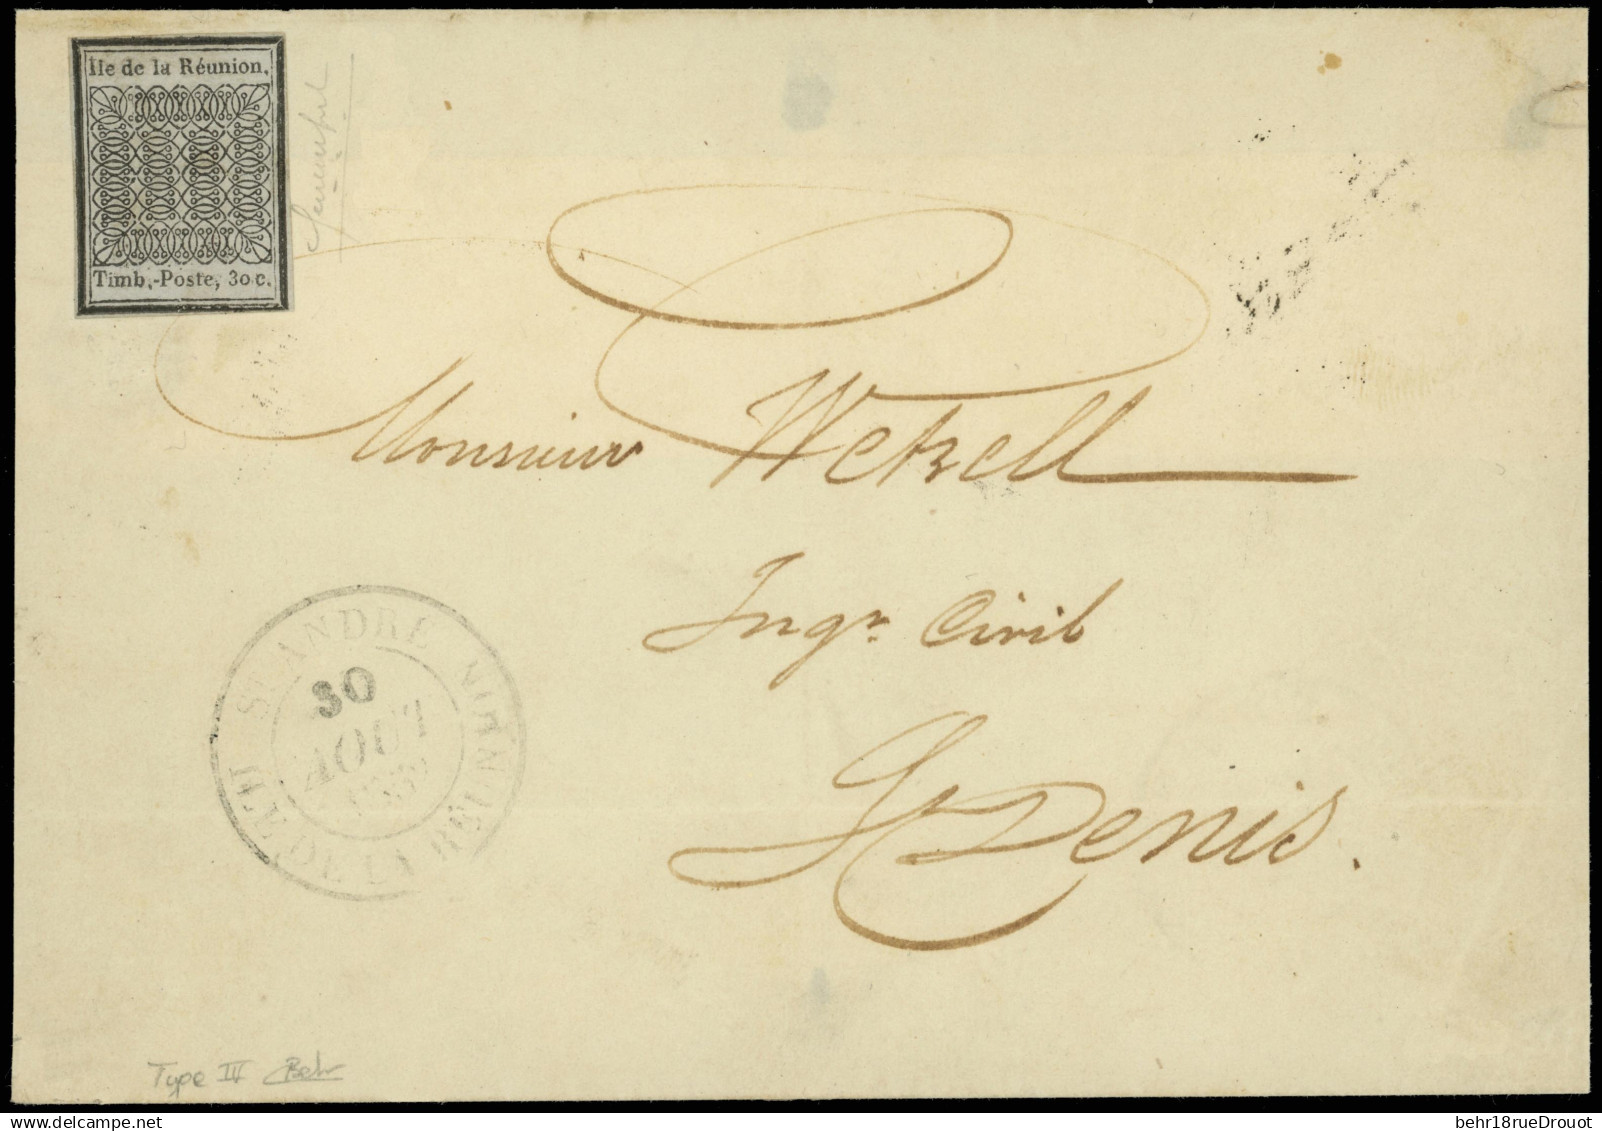 Ile de la Réunion.
Timb.-Poste, 30 c.
Monsieur Wetzell
Ingr. Civil
St Denis.
ST ANDRÉ
30
AOUT
ILE DE LA RÉUNION
Type IV Behr
behr18rueDrouot